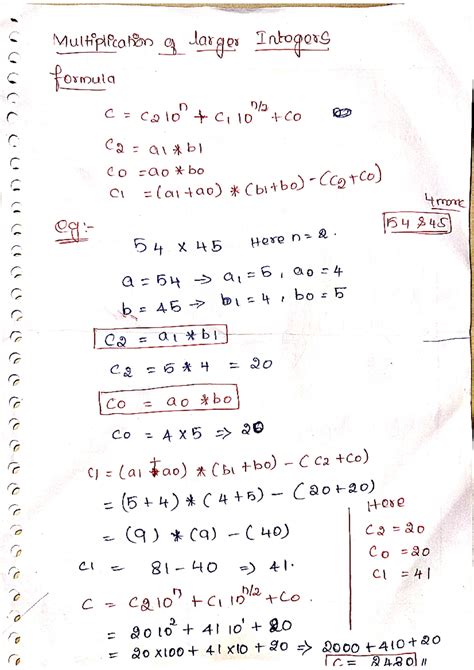 Multiplication of larger Intogers
formula
C = C2 10^n + C1 10^n/2 + C0
C2 = a1 * b1
C0 = a0 * b0
C1 = (a1 + a0) * (b1 + b0) - (C2 + C0)
4 mark
54 & 45
eg:-
54 x 45 Here n = 2.
a = 54 → a1 = 5, a0 = 4
b = 45 → b1 = 4, b0 = 5
C2 = a1 * b1
C2 = 5 * 4 = 20
C0 = a0 * b0
C0 = 4 x 5 ⇒ 20
C1 = (a1 + a0) * (b1 + b0) - (C2 + C0)
= (5 + 4) * (4 + 5) - (20 + 20)
= (9) * (9) - (40)
C1 = 81 - 40 ⇒ 41.
Here
C2 = 20
C0 = 20
C1 = 41
C = C2 10^n + C1 10^n/2 + C0.
= 20 10^2 + 41 10^1 + 20
= 20 x 100 + 41 x 10 + 20 ⇒ 2000 + 410 + 20
C = 2430 //